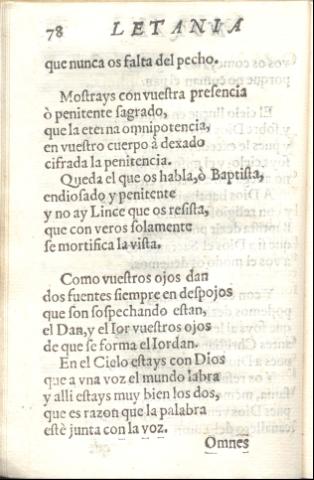 78 LETANIA
que nunca os falta del pecho.
Mostrays con vuestra presencia
ò penitente sagrado,
que la eterna omnipotencia,
en vuestro cuerpo à dexado
cifrada la penitencia.
Queda el que os habla, ò Baptista,
endiosado y penitente
y no ay Lince que os resista,
que con veros solamente
se mortifica la vista.
Como vuestros ojos dan
dos fuentes siempre en despojos
que son sospechando estan,
el Dan, y el Ior vuestros ojos
de que se forma el Iordan.
En el Cielo estays con Dios
que a vna voz el mundo labra
y alli estays muy bien los dos,
que es razon que la palabra
estè junta con la voz.
Omnes